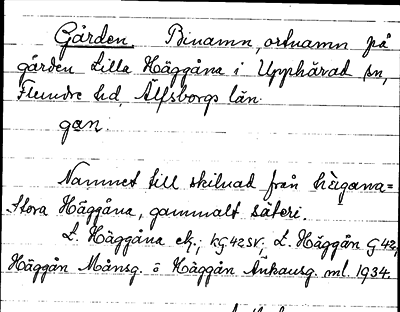 Gården. Binamn, ortnamn på
gården Lilla Häggåna i Upphärad sn,
Flundre hd, Älfsborgs län.
gan.
Namnet till skilnad från hägana=
Stora Häggåna, gammalt säteri.
L. Häggåna ek.; kG42SV, L. Häggån G42,
Häggån Månsg. ö Häggån Ankausg. ml. 1934.